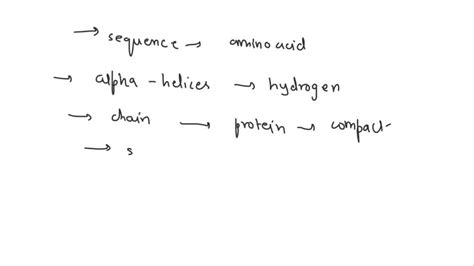 → sequence → amino acid
→ alpha - helices → hydrogen
→ chain → protein → compact
→ s